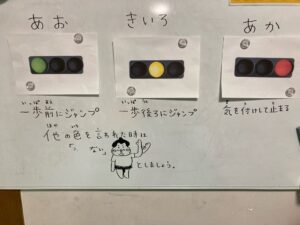 あお きいろ あか
いっぽ まえ
一歩前にジャンプ
いっぽ うし
一歩後ろにジャンプ
き つ と
気を付けして止まる
ほか いろ い とき
他の色を言われた時は
「 ない」
としましょう。